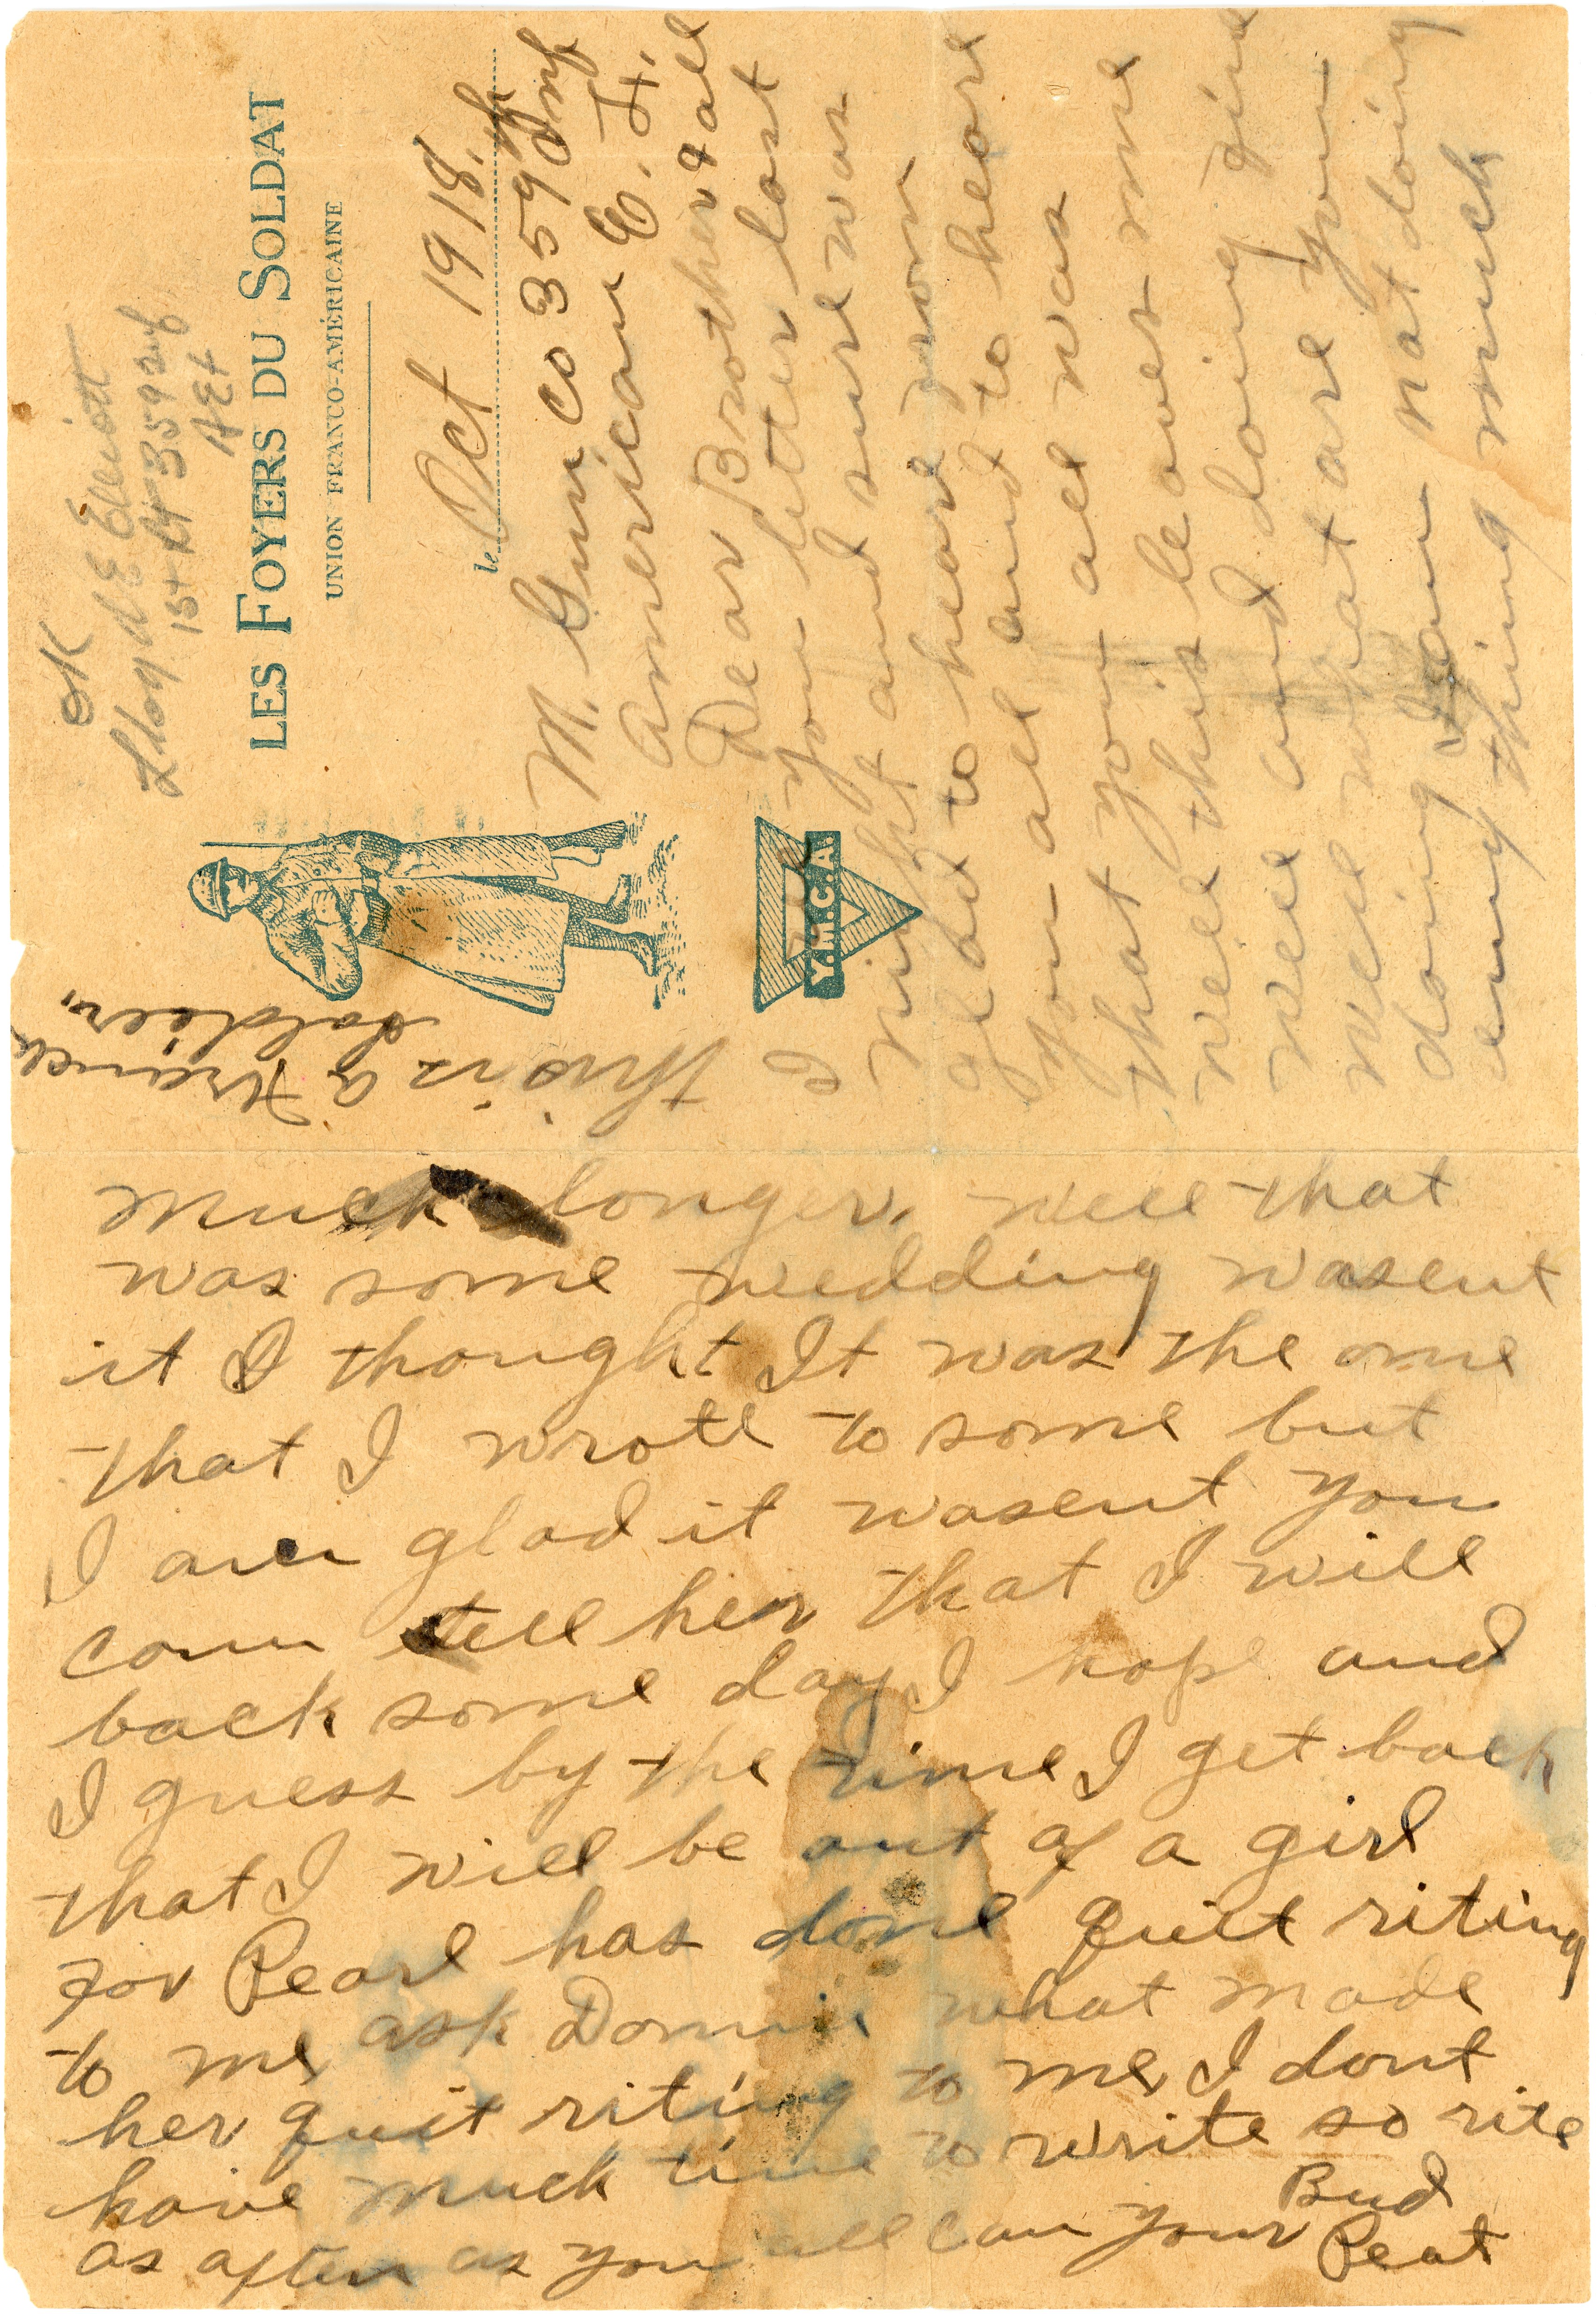 OK
Lloyd E Elliott
1st Lt 359 Inf
AEF
LES FOYERS DU SOLDAT
UNION FRANCO-AMÉRICAINE
le Oct 1918.
M. Gun Co 359 Inf
American E. F.
Dear Brother & all
I rec your letter last
night and sure was
glad to heare from
you all and to heare
that you all was
well this leaves me
well and doing fine
well what are you
doing I am not doing
eny thing much
Y.M.C.A.
this is a french
soldier.
much longer. well that
was some wedding wasent
it I thought It was the one
that I wrote to some but
I am glad it wasent you
can tell her that I will
back some day I hope and
I guess by the time I get back
that I will be out of a girl
for Pearl has done quit riting
to me ask Donnie what made
her quit riting to me, I dont
have much time to write so rite
as often as you all can your Bud
Peat